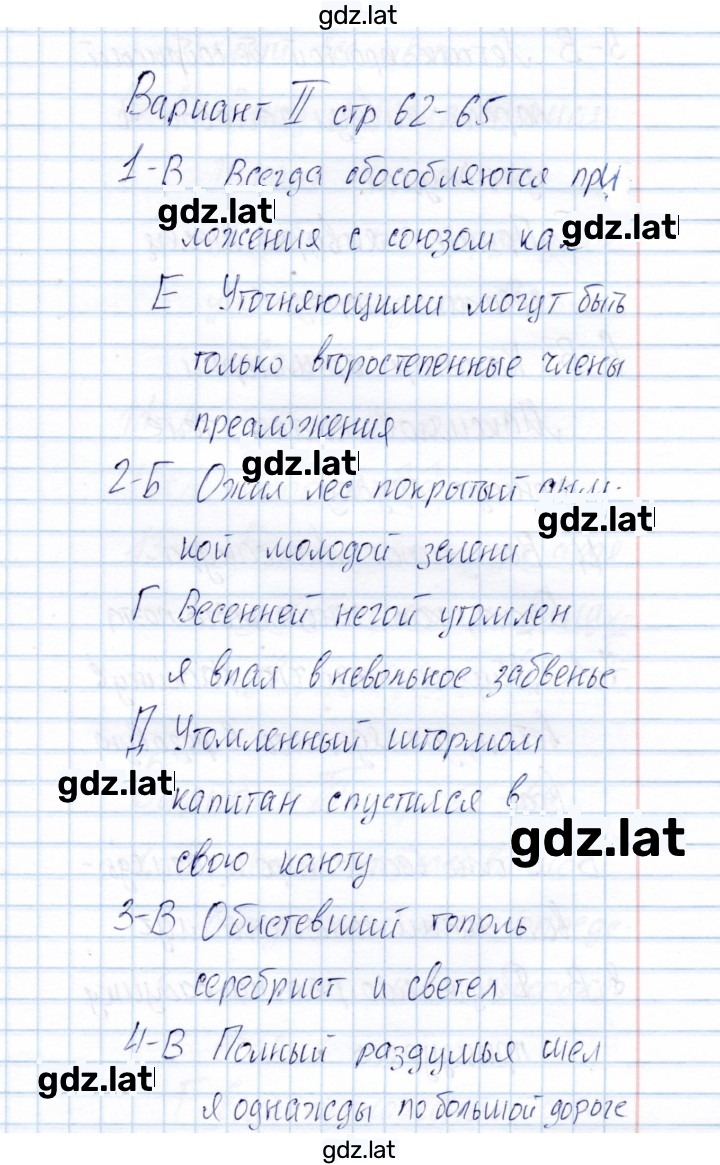 gdz.lat
Вариант II стр 62-65
1-В Всегда обособляются при
gdz.lat
gdz.lat
ложения с союзом как
Е Уточняющими могут быть
только второстепенные члены
преаложения
gdz.lat
2-Б Ожил лес покрытый
gdz.lat
кой молодой зелени
Г Весенней негой утомлен
я впал в невольное забвенье
Д Утомленный штормом
gdz.lat
капитан спустился в
gdz.lat
свою каюту
3-В Облетевший тополь
серебрист и светел
4-В Полный раздумья шел
gdz.lat
я однажды по большой дороге
gdz.lat